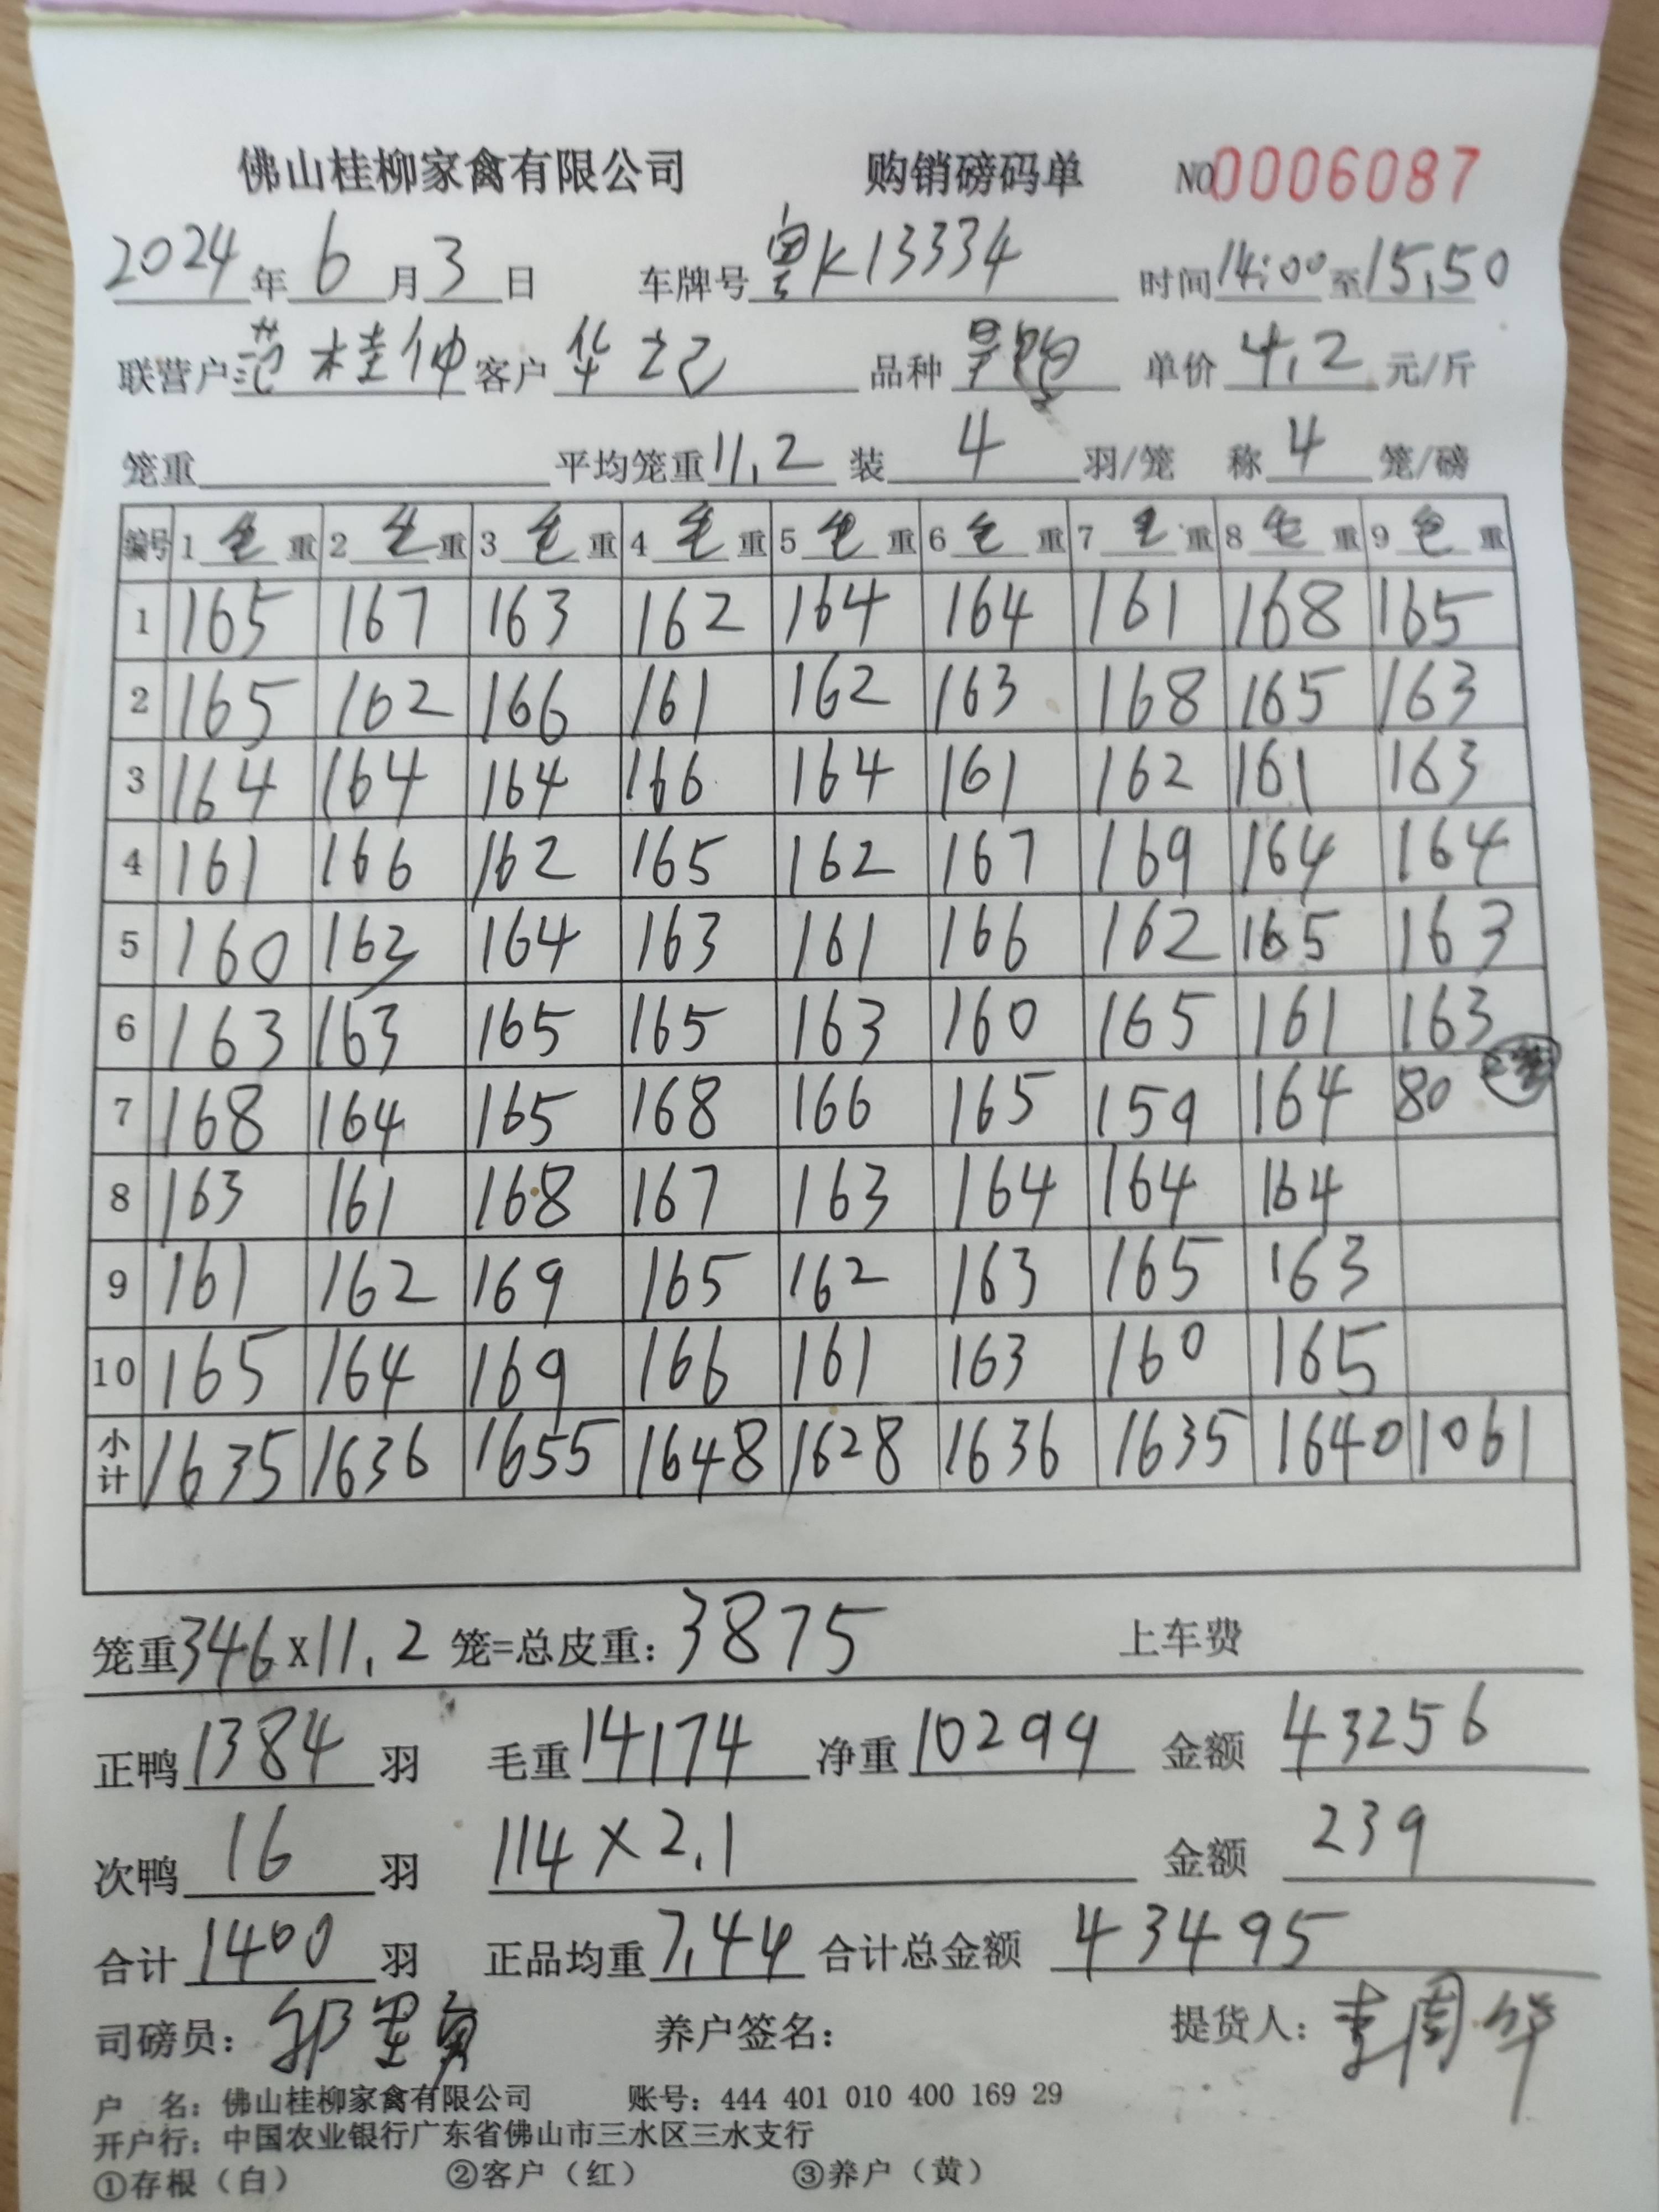 佛山桂柳家禽有限公司 购销磅码单 NO0006087
2024年6月3日 车牌号粤K13334 时间14:00至15.50
联营户范桂仲 客户华记 品种 单价4.2元/斤
笼重 平均笼重11.2 装4羽/笼 称4笼/磅
编号 1毛重 2毛重 3毛重 4毛重 5毛重 6毛重 7毛重 8毛重 9毛重
1 165 167 163 162 164 164 161 168 165
2 165 162 166 161 162 163 168 165 163
3 164 164 164 166 164 161 162 161 163
4 161 166 162 165 162 167 169 164 164
5 160 163 164 163 161 166 162 165 163
6 163 163 165 165 163 160 165 161 163
7 168 164 165 168 166 165 159 164 80
8 163 161 168 167 163 164 164 164
9 161 162 169 165 162 163 165 163
10 165 164 169 166 161 163 160 165
小计 1635 1636 1655 1648 1628 1636 1635 1640 1061
笼重346x11.2笼=总皮重：3875 上车费
正鸭1384羽 毛重14174 净重10299 金额43256
次鸭16羽 114×2.1 金额239
合计1400羽 正品均重7.44 合计总金额43495
司磅员： 养户签名： 提货人：李周华
户 名：佛山桂柳家禽有限公司 账号：444 401 010 400 169 29
开户行：中国农业银行广东省佛山市三水区三水支行
①存根（白） ②客户（红） ③养户（黄）